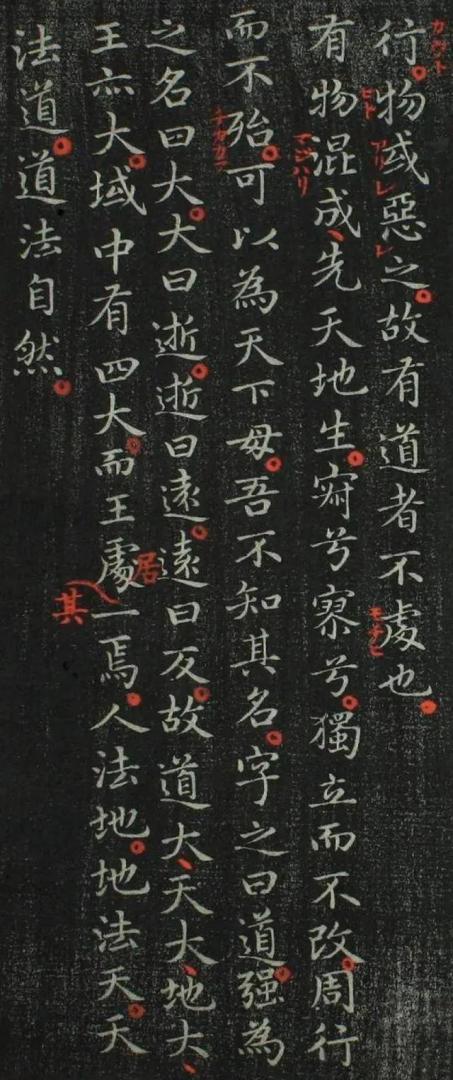 行。物或惡之。故有道者不處也。
有物混成、先天地生。寂兮寥兮。獨立而不改。周行
マジハリ
而不殆。可以為天下母。吾不知其名。字之曰道。强為
之名曰大。大曰逝。逝曰遠。遠曰反。故道大、天大、地大、
王亦大。域中有四大。而王處一焉。人法地。地法天。天
居
其
法道。道法自然。